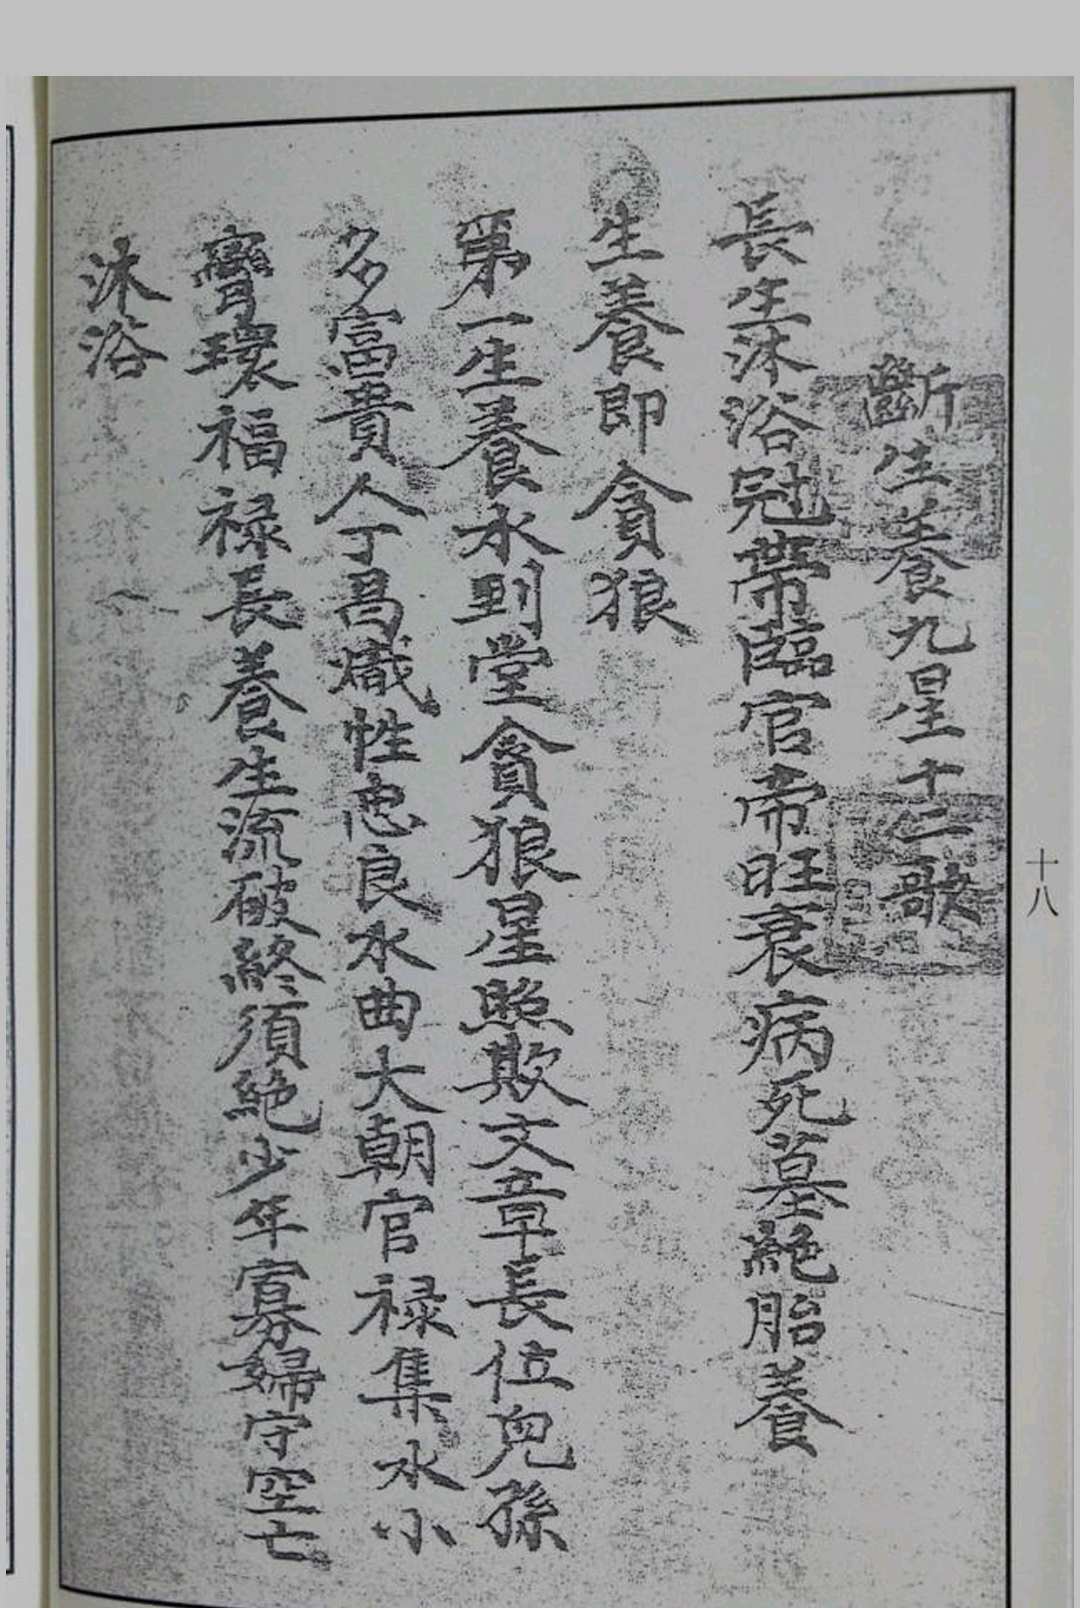 斷生養九星十二歌
長生沐浴冠帶臨官帝旺衰病死墓絕胎養
生養即貪狼
第一生養水到堂貪狼星照欺文章長位兒孫
多富貴人丁昌熾性忠良水曲大朝官禄集水小
寶環福禄長養生流破終須絕少年寡婦守空亡
沐浴
十八